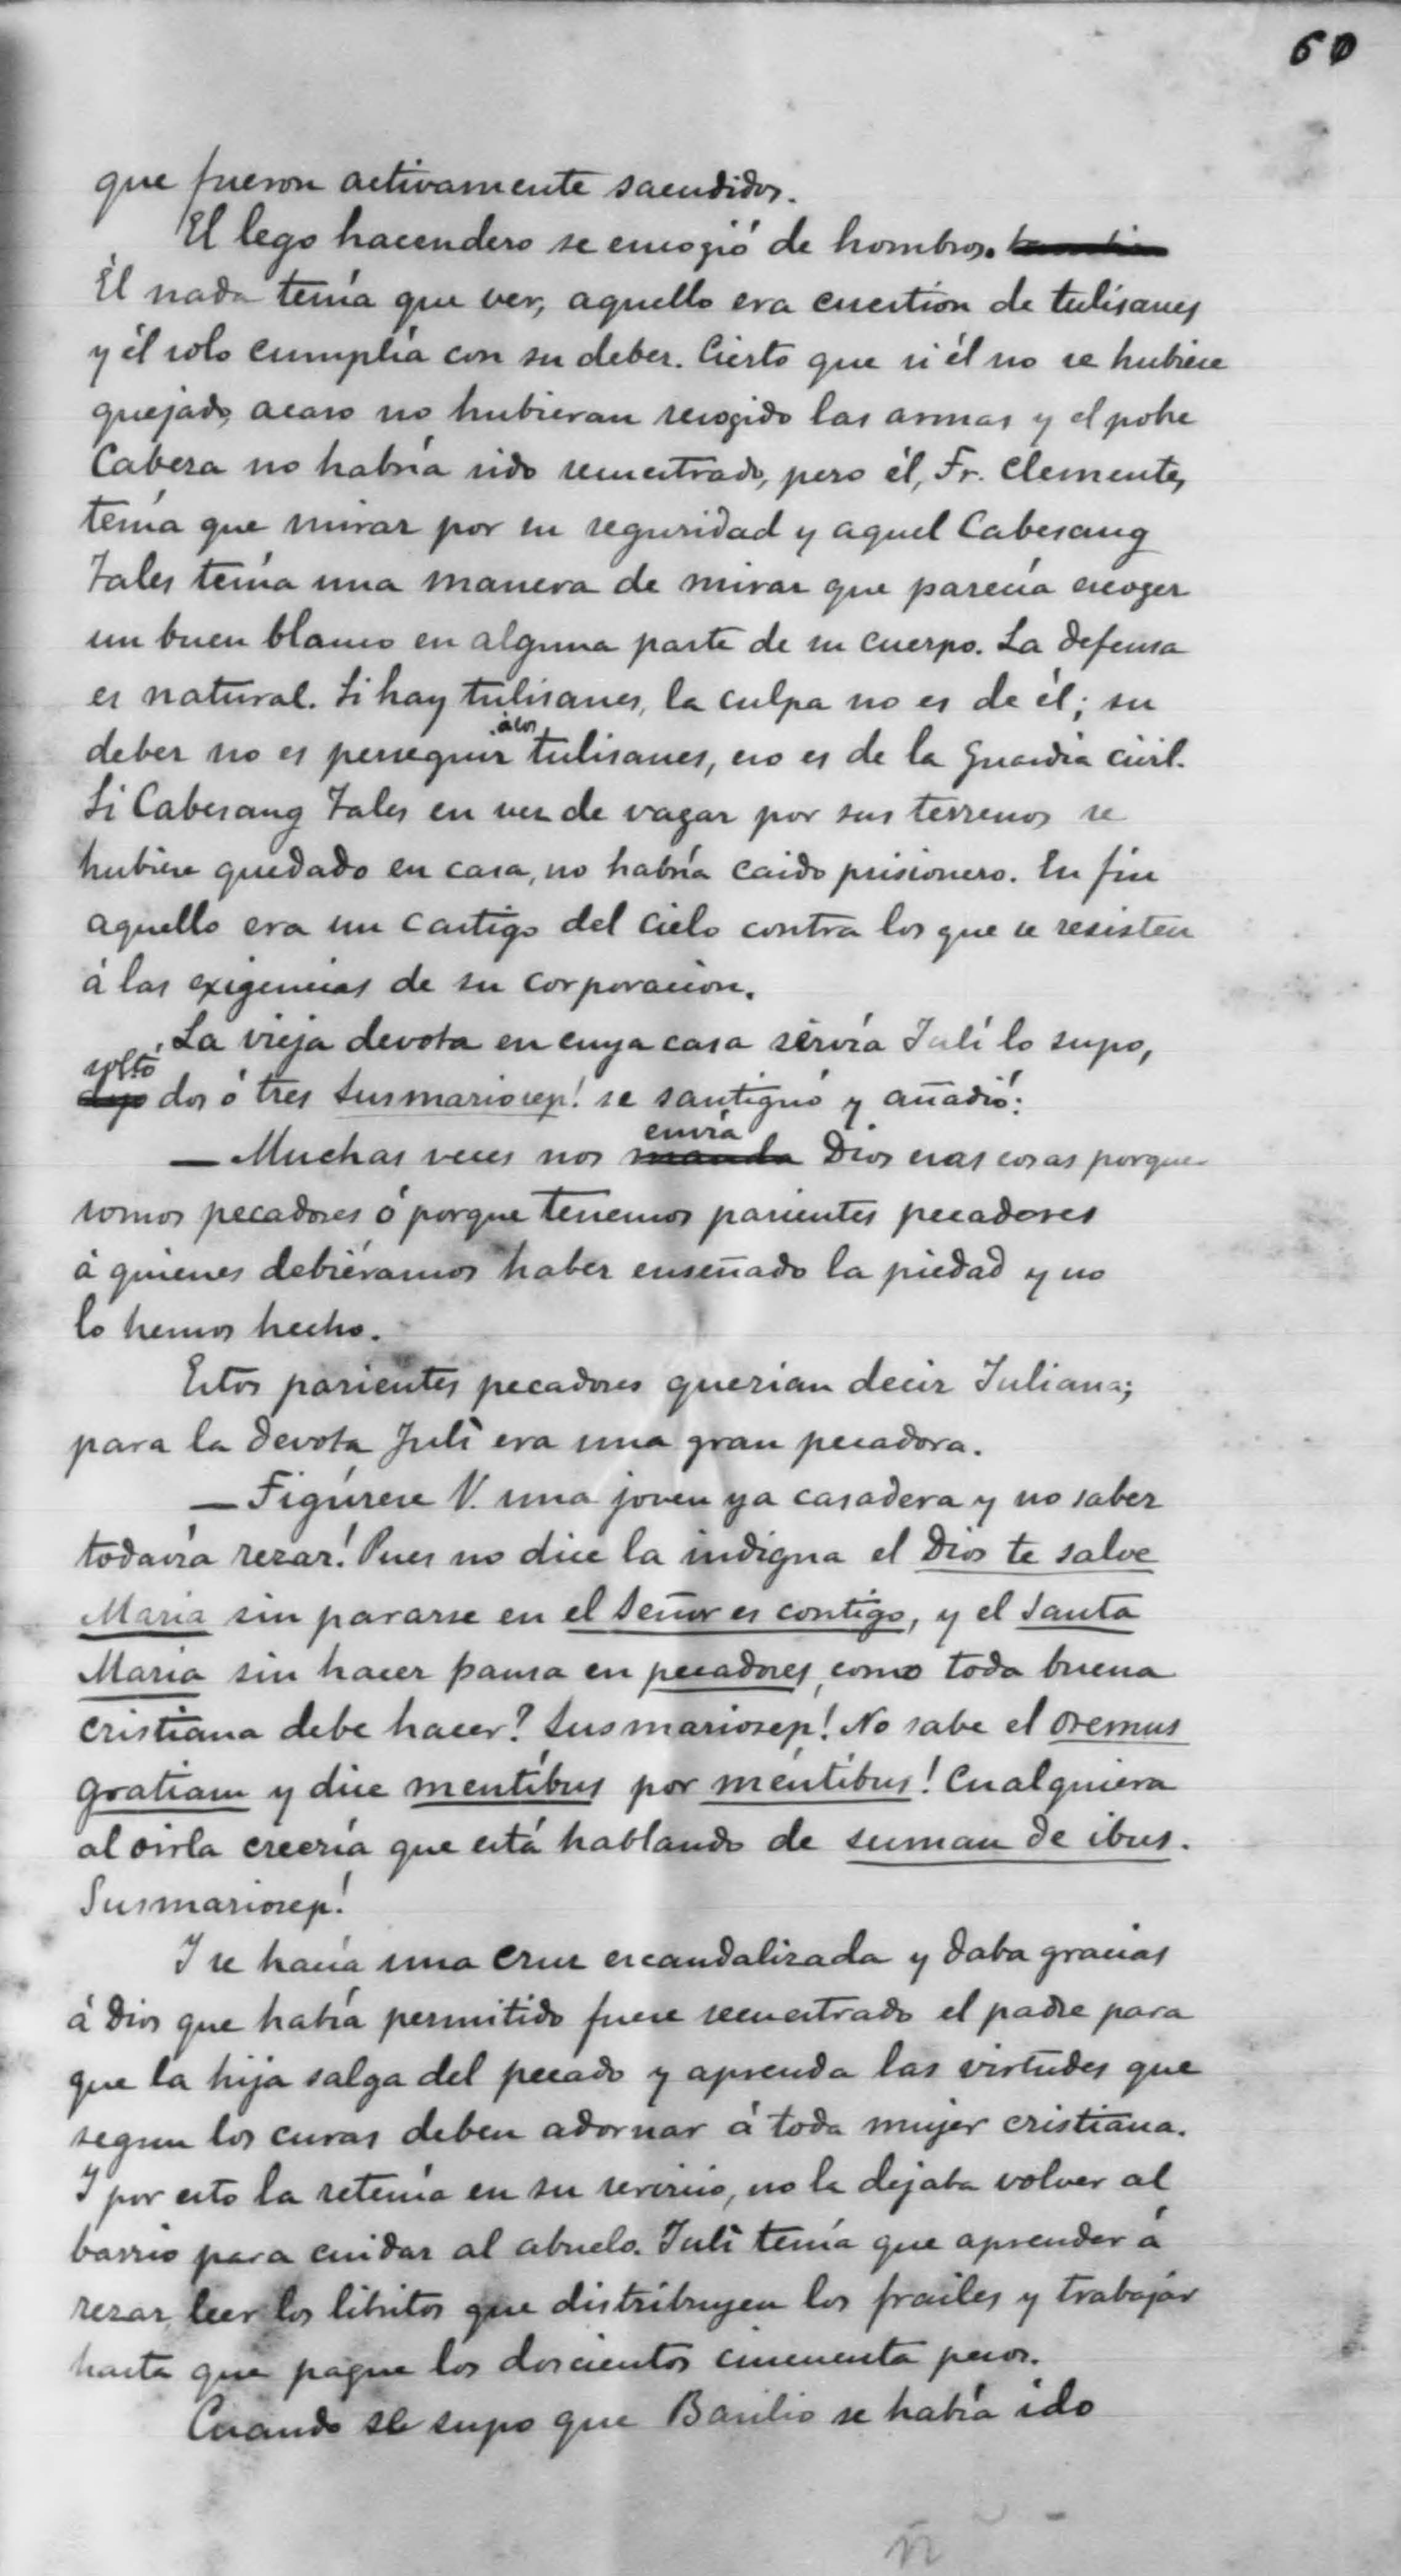 60
que fueron activamente sacudidos.
El lego hacendero se encogió de hombros.
Él nada tenía que ver, aquello era cuestión de tulisanes
y él solo cumplía con su deber. Cierto que si él no se hubiese
quejado, acaso no hubieran recogido las armas y el pobre
Cabeza no habría sido secuestrado, pero él, Fr. Clemente,
tenía que mirar por su seguridad y aquel Cabesang
Tales tenía una manera de mirar que parecía escoger
un buen blanco en alguna parte de su cuerpo. La defensa
es natural. Si hay tulisanes, la culpa no es de él; su
deber no es perseguir á los tulisanes, eso es de la Guardia civil.
Si Cabesang Tales en vez de vagar por sus terrenos se
hubiese quedado en casa, no habría caido prisionero. En fin
aquello era un castigo del cielo contra los que se resisten
á las exigencias de su corporacion.
La vieja devota en cuya casa servía Julî lo supo,
soltó
dijo dos ó tres Susmariosep! se santiguó y añadió:
envía
— Muchas veces nos manda Dios esas cosas porque
somos pecadores ó porque tenemos parientes pecadores
á quienes debiéramos haber enseñado la piedad y no
lo hemos hecho.
Estos parientes pecadores querían decir Juliana;
para la devota Julî era una gran pecadora.
— Figúrese V. una joven ya casadera y no saber
todavía rezar! Pues no dice la indigna el Dios te salve
María sin pararse en el Señor es contigo, y el Santa
María sin hacer pausa en pecadores, como toda buena
cristiana debe hacer? Susmariosep! No sabe el oremus
gratiam y dice mentíbus por méntibus! Cualquiera
al oirla creería que está hablando de suman de ibus.
Susmariosep!
Y se hacía una cruz escandalizada y daba gracias
á Dios que había permitido fuese secuestrado el padre para
que la hija salga del pecado y aprenda las virtudes que
segun los curas deben adornar á toda mujer cristiana.
Y por esto la retenía en su servicio, no la dejaba volver al
barrio para cuidar al abuelo. Julî tenía que aprender á
rezar, leer los libritos que distribuyen los frailes y trabajar
hasta que pague los doscientos cincuenta pesos.
Cuando se supo que Basilio se había ido